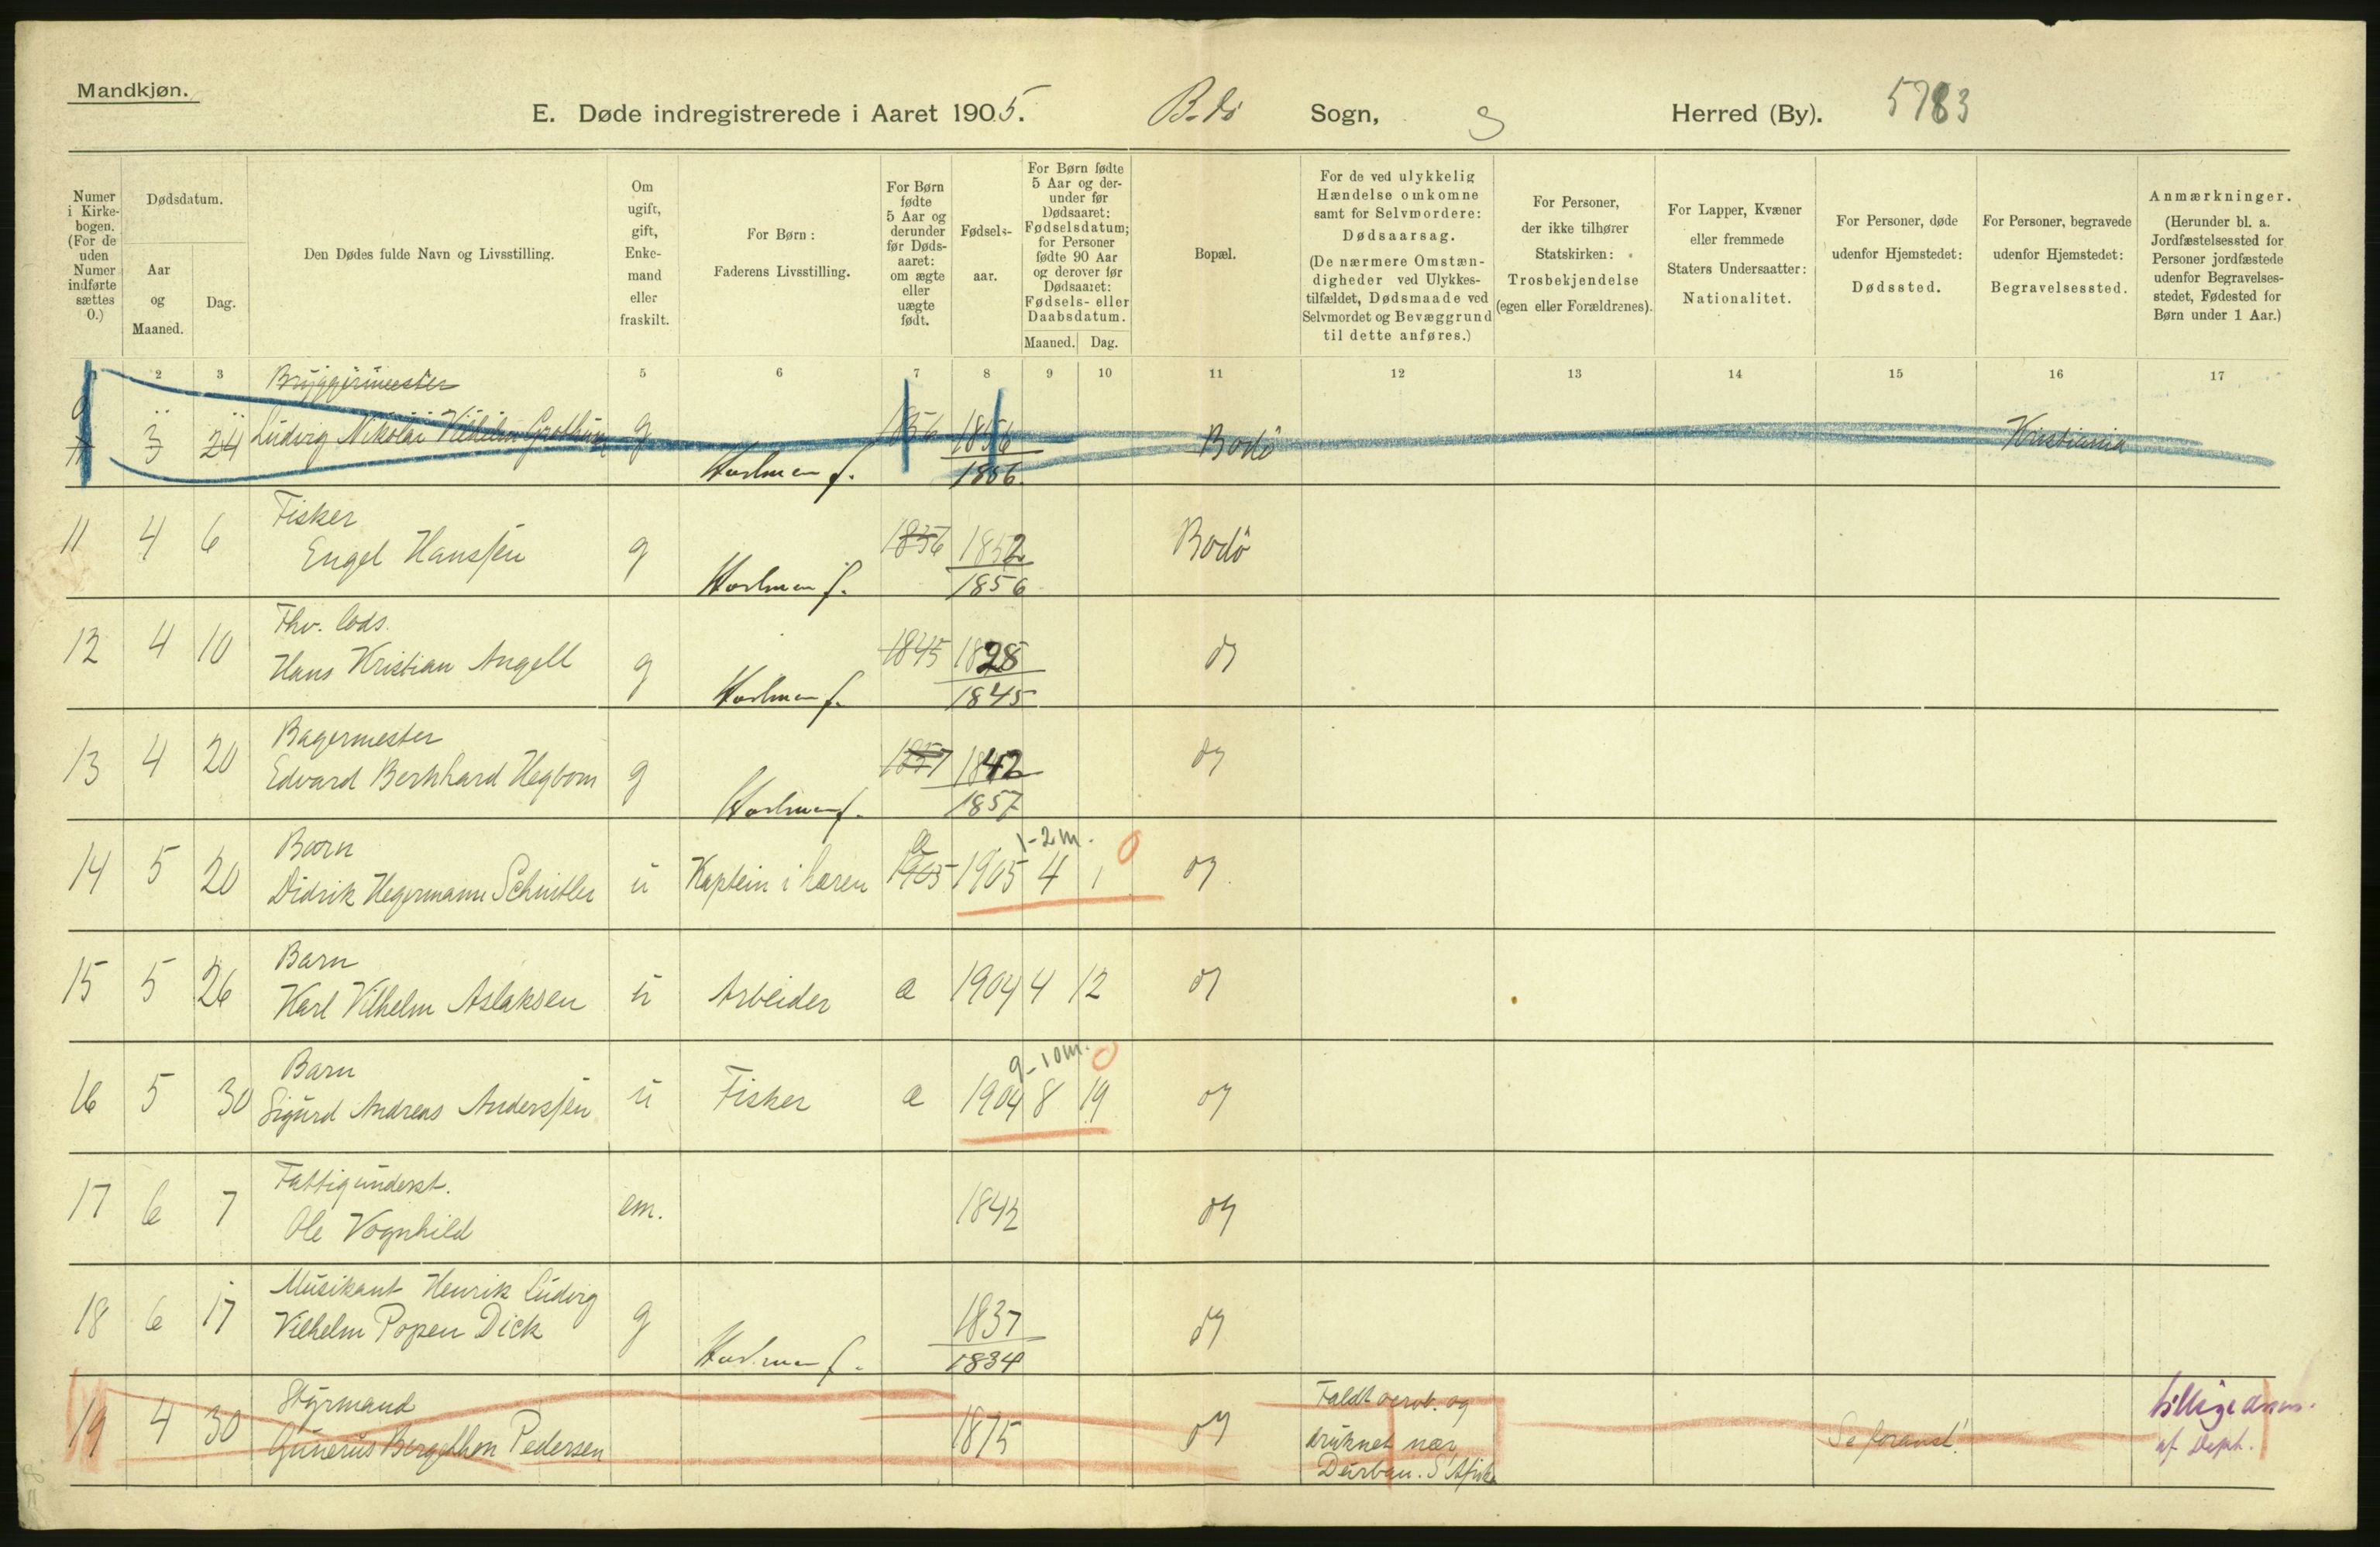 Mandkjøn.
E. Døde indregistrerede i Aaret 1905. Bodø Sogn, Herred (By). 5783
Numer i Kirkebogen. (For de uden Numer indførte sættes 0.)
Dødsdatum.
Aar og Maaned.
Dag.
Den Dødes fulde Navn og Livsstilling.
Om ugift, gift, Enkemand eller fraskilt.
For Børn: Faderens Livsstilling.
For Børn fødte 5 Aar og derunder før Dødsaaret: om ægte eller uægte født.
Fødselsaar.
For Børn fødte 5 Aar og derunder før Dødsaaret: Fødselsdatum; for Personer fødte 90 Aar og derover før Dødsaaret: Fødsels- eller Daabsdatum.
Maaned. Dag.
Bopæl.
For de ved ulykkelig Hændelse omkomne samt for Selvmordere: Dødsaarsag. (De nærmere Omstændigheder ved Ulykkestilfældet, Dødsmaade ved Selvmordet og Bevæggrund til dette anføres.)
For Personer, der ikke tilhører Statskirken: Trosbekjendelse (egen eller Forældrenes).
For Lapper, Kvæner eller fremmede Staters Undersaatter: Nationalitet.
For Personer, døde udenfor Hjemstedet: Dødssted.
For Personer, begravede udenfor Hjemstedet: Begravelsessted.
Anmærkninger. (Herunder bl. a. Jordfæstelsessted for Personer jordfæstede udenfor Begravelsesstedet, Fødested for Børn under 1 Aar.)
2 3 5 6 7 8 9 10 11 12 13 14 15 16 17
Bryggerimester
3 24 Ludvig Nikolai Vilhelm g 1856 1856 Bodø Kristiania
1856
Fisker
11 4 6 Engel Hansen g 1856 1852 Bodø
1856
Fhv. lods.
12 4 10 Hans Kristian Angell g 1845 1828
1845
Bagermester
13 4 20 Edvard Bernhard Hegbom g 1857 1842
1857
Barn 1-2 m. 0
14 5 20 Didrik Hegermann Schnitler u Kaptein i hæren 1905 1905 4 1
Barn
15 5 26 Karl Vilhelm Aslaksen u Arbeider æ 1904 4 12
Barn 9-10 m. 0
16 5 30 Sigurd Andreas Andersen u Fisker æ 1904 8 19
Fattigunderst.
17 6 7 Ole Vognhild em. 1842
Musikant Henrik Ludvig
18 6 17 Vilhelm Popen Dick g 1837
1834
Styrmand
19 4 30 Gunerius Bergethon Pedersen 1875
Faldt overb. og
druknet nær
Durban. S. Afrika
Se foranst.
af Dept.